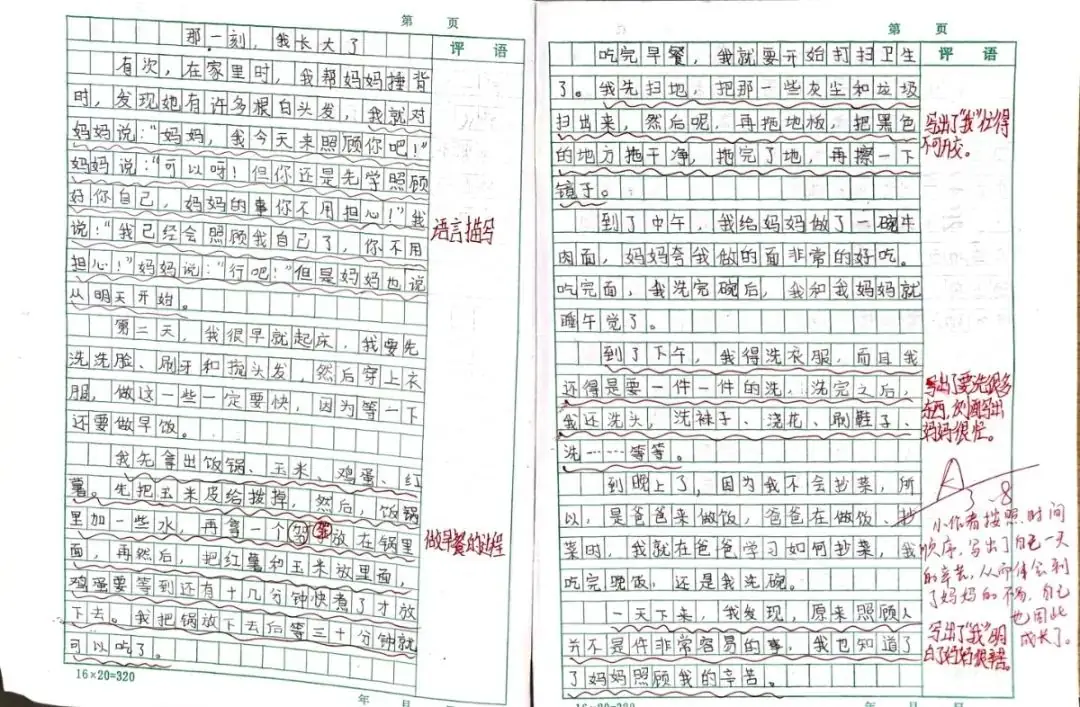 第 页
评 语
那一刻，我长大了
有次，在家里时，我帮妈妈捶背
时，发现她有许多根白头发，我就对
妈妈说："妈妈，我今天来照顾你吧！"
妈妈说："可以呀！但你还是先学照顾
好你自己，妈妈的事你不用担心！"我
说："我已经会照顾我自己了，你不用
担心！"妈妈说："行吧！"但是妈妈也说
从明天开始。
语言描写
第二天，我很早就起床，我要先
洗洗脸、刷牙和梳头发，然后穿上衣
服，做这一些一定要快，因为等一下
还要做早饭。
我先拿出饭锅、玉米、鸡蛋、红
薯。先把玉米皮给拨掉，然后，饭锅
里加一些水，再拿一个 放在锅里
面，再然后，把红薯和玉米放里面，
鸡蛋要等到还有十几分钟快煮了才放
下去。我把锅放下去后等三十分钟就
可以吃了。
做早餐的过程
16×20=320
年 月
第 页
评 语
吃完早餐，我就要开始打扫卫生
了。我先扫地，把那一些灰尘和垃圾
扫出来，然后呢，再拖地板，把黑色
的地方拖干净，拖完了地，再擦一下
镜子。
写出了"我"忙得
不可开交。
到了中午，我给妈妈做了一碗牛
肉面，妈妈夸我做的面非常的好吃。
吃完面，我洗完碗后，我和我妈妈就
睡午觉了。
到了下午，我得洗衣服，而且我
还得是要一件一件的洗，洗完之后，
我还洗头，洗袜子、浇花、刷鞋子、
洗……等等。
写出了要洗很多
东西，侧面写出
妈妈很忙。
到晚上了，因为我不会抄菜，所
以，是爸爸来做饭，爸爸在做饭、抄
菜时，我就在爸爸学习如何抄菜，我
吃完晚饭，还是我洗碗。
一天下来，我发现，原来照顾人
并不是件非常容易的事，我也知道了
了妈妈照顾我的辛苦。
A
3 - 8
小作者按照时间
顺序，写出了自己一天
的辛苦，从而体会到
了妈妈的不易，自己
也因此
成长了。
写出了"我"明
白了妈妈很辛苦。
16×20=320
年 月 日